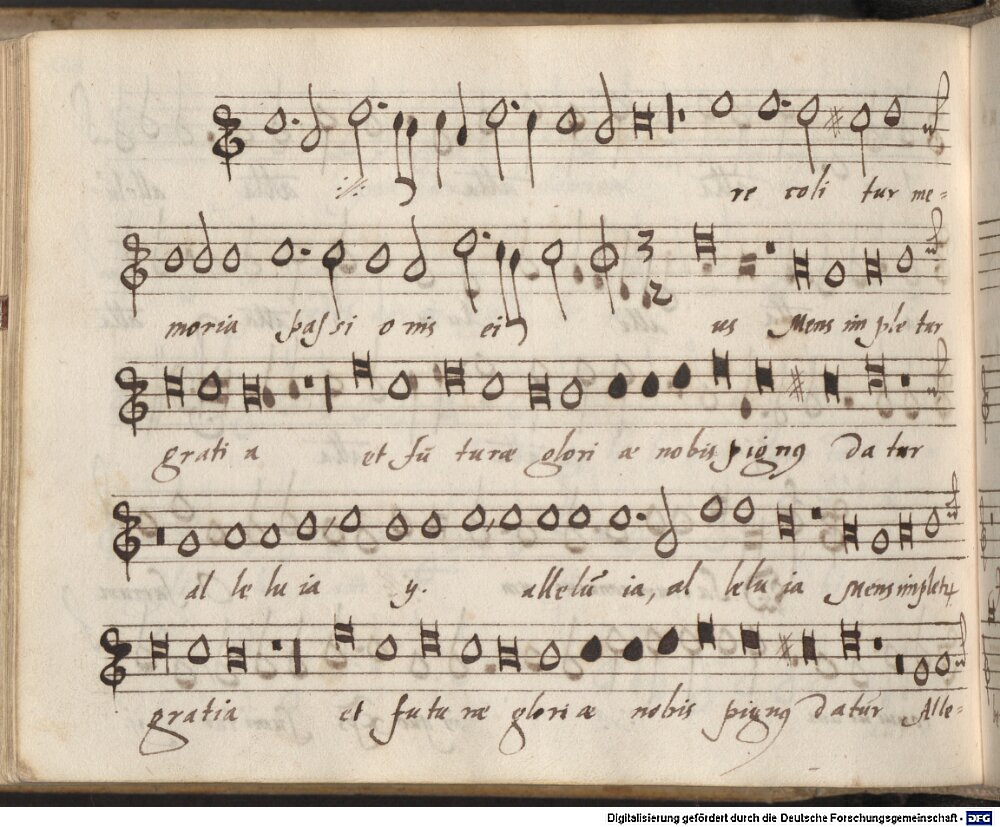 :/: re coli tur me=
moria passi o nis ei us Mens im ple tur
grati a et fū turæ glori æ nobis pignꝯ Da tur
al le lu ia y. allelū ia, al lelu ia Mens impletꝝ
gratia et futu ræ glori æ nobis pignꝯ Datur Alle=
Digitalisierung gefördert durch die Deutsche Forschungsgemeinschaft - DFG